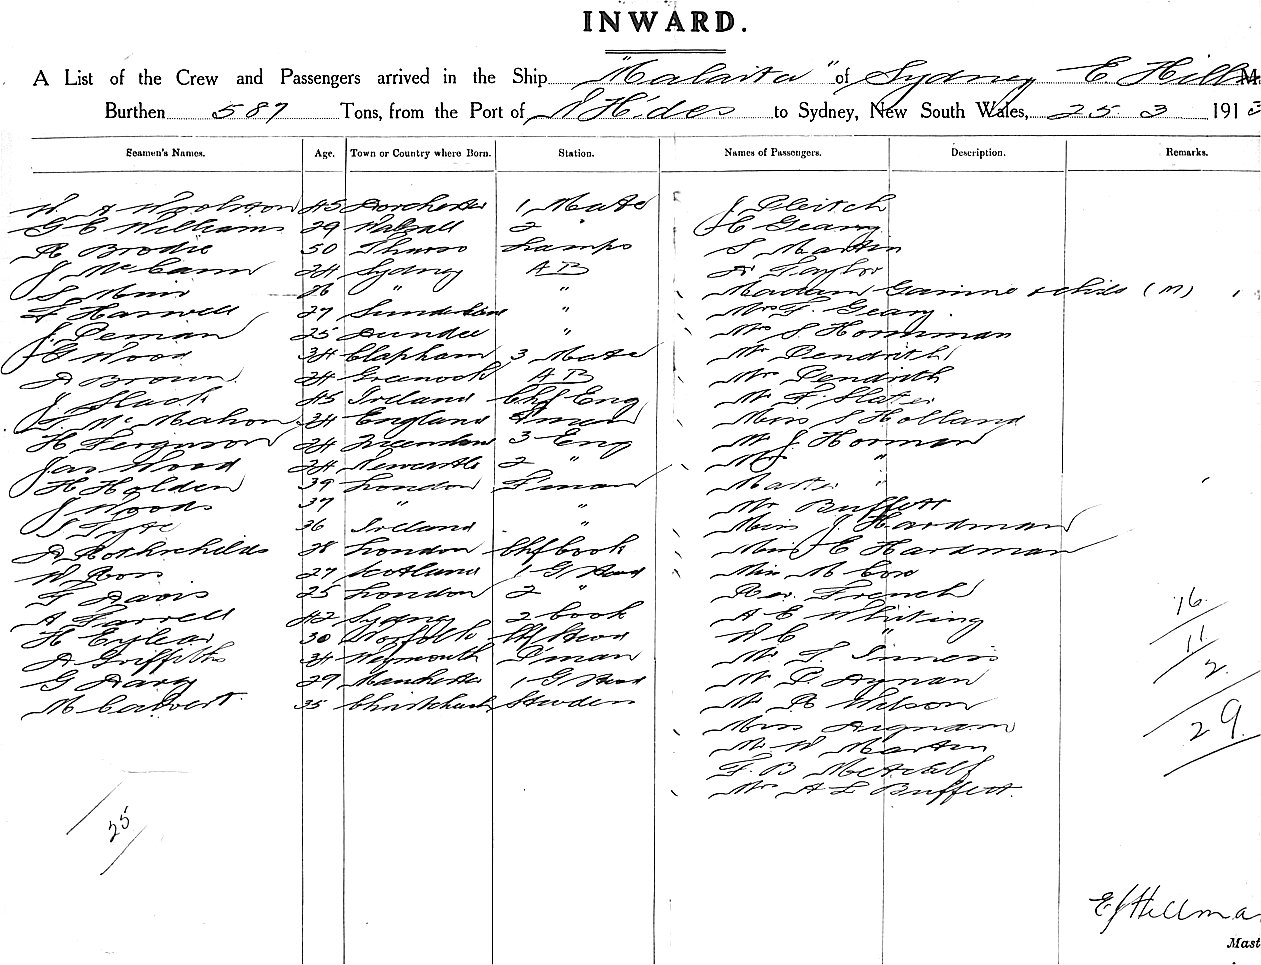 INWARD.
A List of the Crew and Passengers arrived in the Ship "Malaita" of Sydney E Hillm
Burthen 587 Tons, from the Port of N Hides to Sydney, New South Wales, 25 3 1913
Seamen's Names. Age. Town or Country where Born. Station. Names of Passengers. Description. Remarks.
W A Woolston 45 Dorchester 1 Mate J
G E Williams 29 Walsall 2 " H Geary
R Brodie 50 Thurso Lamps S Martin
J McCann 24 Sydney AB A Taylor
S Muir 26 " " Madam & child (M)
F Harwell 27 Sunderland " Mrs F. Geary.
J. Deman 25 Dundee " Mr S Hornman
G Wood 34 Clapham 3 Mate Mr Pendrith
A Brown. 24 Greenock AB Mrs Pendrith
J. Slack 45 Ireland Chf Eng Mr F. Slater
McMahon 34 England Fman Miss S Holland
H Ferguson 24 3 Eng Mr J. Horman
Jas Wood 24 Newcastle 2 " Mrs "
H Holden 39 London F'man Master "
J Woods 37 " " Mr Buffett
S 36 Ireland " Miss J Hardman
A Rothschilds 28 London Chf Cook Miss E Hardman
W. Ross 27 Scotland 1 G Stwd Miss M Cox
F Davis 25 London 2 " Rev. French
A Farrell 42 Sydney 2 Cook A E Whiting
H 30 Norfolk Chf Stwd W E "
A Griffiths 34 Weymouth F'man Mr S
G Davy 29 Manchester 1 G Stwd Mr
M Calvert. 35 Christchurch Stewdess Mr R Wilson
Miss
Mr W Martin
F. B Metcalf
Mrs A L Buffett.
16
11
2
29
25
E J Hillma
Mast